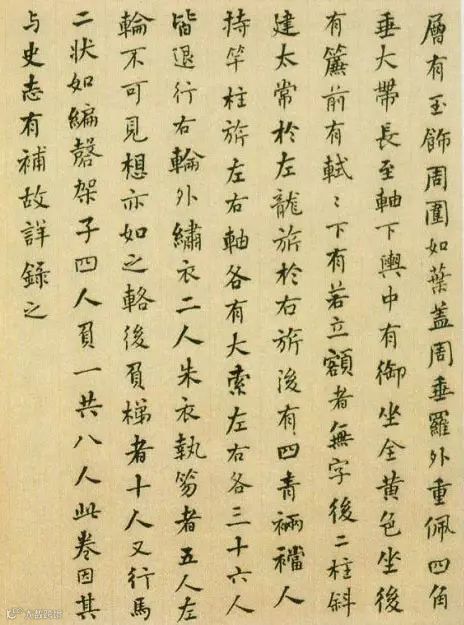 層有玉飾周圍如葉蓋周垂羅外重佩四角
垂大帶長至軸下輿中有御坐全黃色坐後
有簾前有軾〻下有若立額者無字後二柱斜
建太常於左龍旂於右旂後有四青裲襠人
持竿柱旂左右軸各有大索左右各三十六人
皆退行右輪外繡衣二人朱衣執笏者五人左
輪不可見想亦如之輅後負梯者十人又行馬
二状如編磬架子四人負一共八人此卷因其
与史志有補故詳錄之